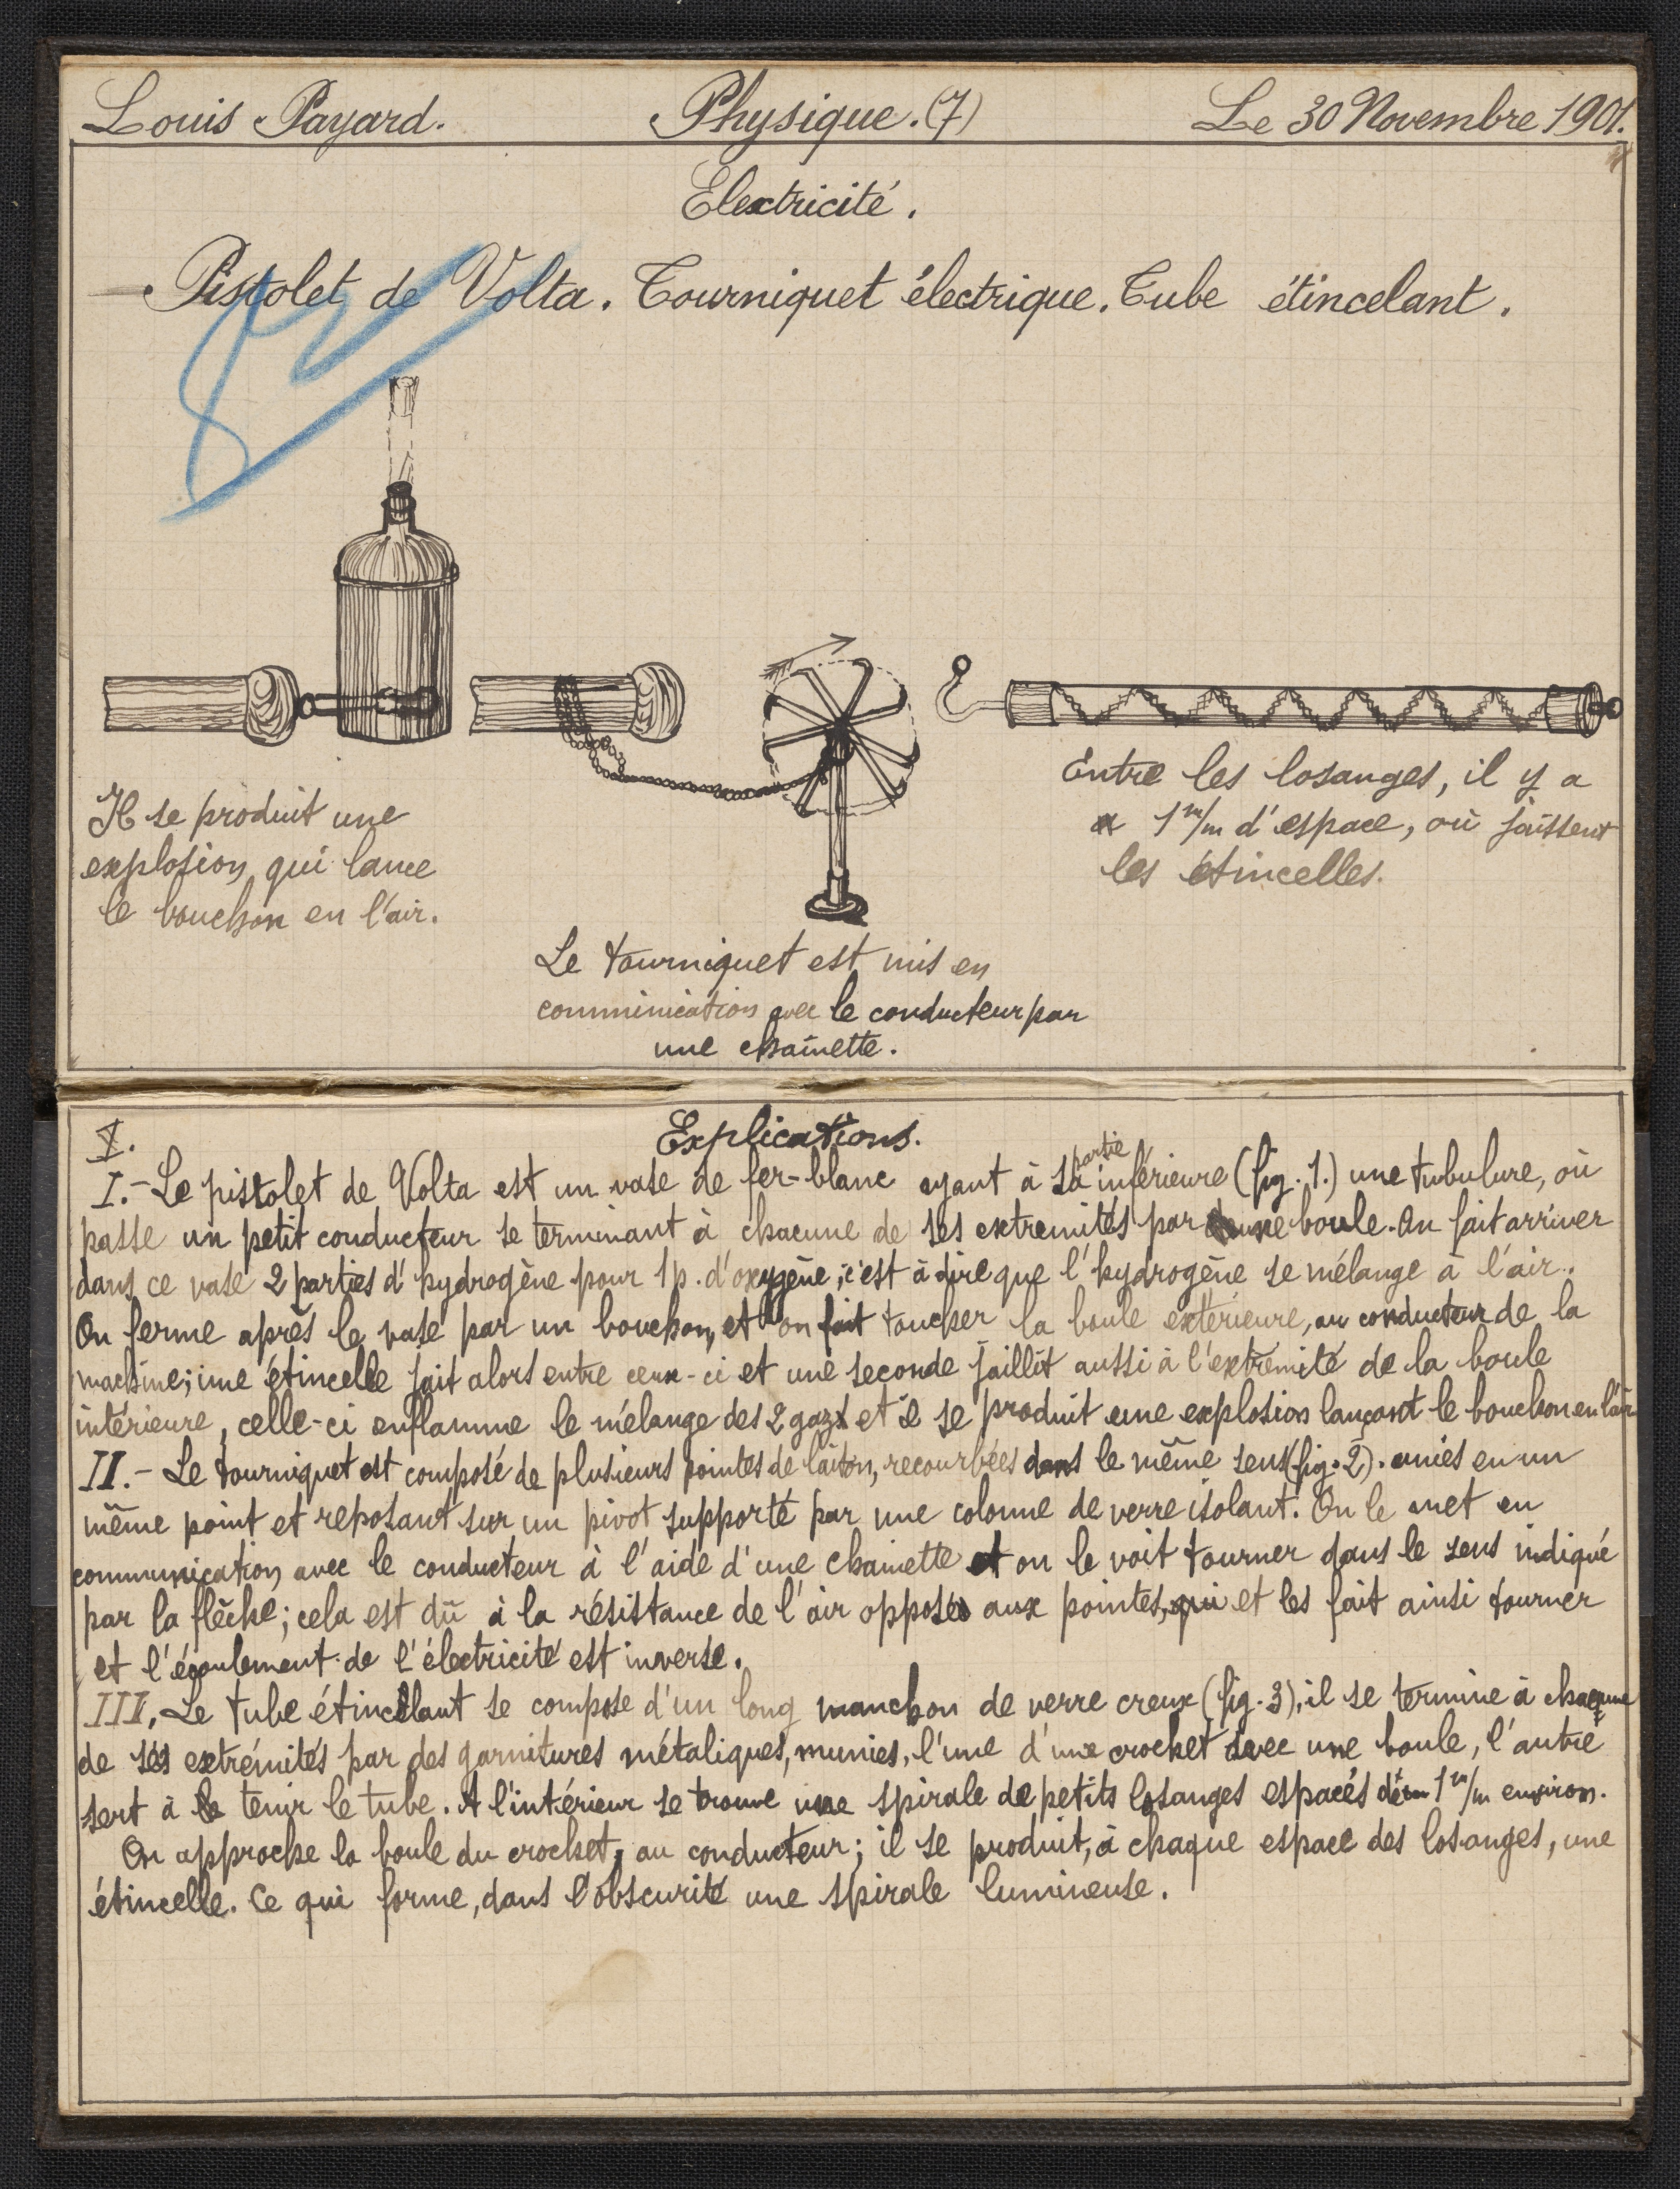 Louis Payard. Physique. (7) Le 30 Novembre 1901.
Electricité.
Pistolet de Volta. Tourniquet électrique. Tube étincelant.
Il se produit une
explosion qui lance
le bouchon en l'air.
Le tourniquet est mis en
comminication avec le conducteur par
une chaînette.
Entre les losanges, il y a
1 m/m d'espace, où jaissent
les étincelles.
Explications.
I.- Le pistolet de Volta est un vase de fer-blanc ayant à sa partie inférieure (fig. 1.) une tubulure, où
passe un petit conducteur se terminant à chacune de ses extremités par une boule. On fait arriver
dans ce vase 2 parties d'hydrogène pour 1 p. d'oxygène; c'est à dire que l'hydrogène se mélange à l'air.
On ferme après le vase par un bouchon, et l'on fait toucher la boule extérieure, au conducteur de la
machine; une étincelle jait alors entre ceux-ci et une seconde jaillit aussi à l'extrémité de la boule
intérieure, celle-ci enflamme le mélange des 2 gaz et il se produit une explosion lançant le bouchon en l'air
II.- Le tourniquet est composé de plusieurs pointes de laiton, recourbées dans le même sens (fig. 2). unies en un
même point et reposant sur un pivot supporté par une colonne de verre isolant. On le met en
communication avec le conducteur à l'aide d'une chainette et on le voit tourner dans le sens indiqué
par la flèche; cela est dû à la résistance de l'air opposés aux pointes, qui et les fait ainsi tourner
et l'écoulement de l'électricité est inverse.
III. Le tube étincelant se compose d'un long manchon de verre creux (fig. 3), il se termine à chacune
de ses extrémités par des garnitures métaliques, munies, l'une d'une crochet avec une boule, l'autre
sert à tenir le tube. A l'intérieur se trouve une spirale de petits losanges espacés de 1 m/m environ.
On approche la boule du crochet, au conducteur; il se produit, à chaque espace des losanges, une
étincelle. Ce qui forme, dans l'obscurité une spirale lumineuse.